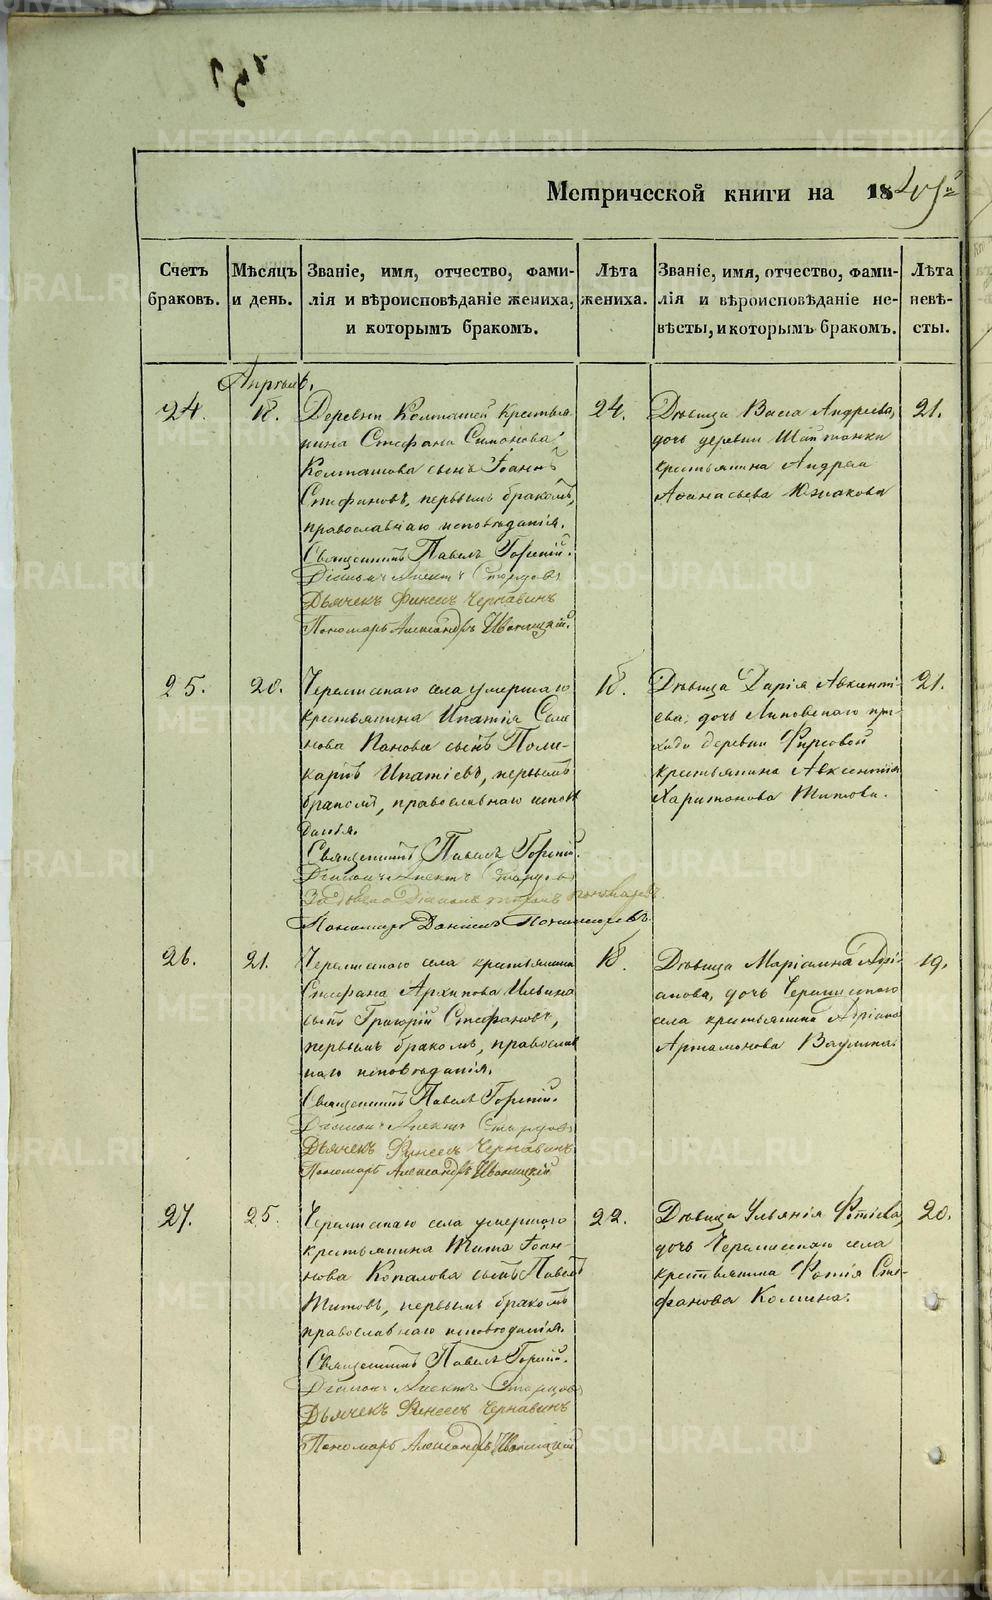 Метрической книги на 18
Счетъ браковъ.
Мѣсяцъ и день.
Званіе, имя, отчество, фами-
лія и вѣроисповѣданіе жениха,
и которымъ бракомъ.
Лѣта
жениха.
Званіе, имя, отчество, фами-
лія и вѣроисповѣданіе не-
вѣсты, и которымъ бракомъ.
Лѣта
невѣ-
сты.
Апрѣль.
24.
18.
Деревни Колташей крестья
нина Стефана Симонова
Колташова сынъ Іоаннъ
Стефановъ, первымъ бракомъ,
православнаго исповѣданія.
Священникъ Павелъ Горный.
Діаконъ Старцовъ
Дьячекъ Финеесъ Чернавинъ
Пономарь Александръ Иваницкій.
24.
Дѣвица Васса Андреева,
дочь деревни Шайтанки
крестьянина Андрея
Аѳанасьева Южакова
21.
25.
20.
Черемисскаго села умершаго
крестьянина Ипатія Семе
нова Панова сынъ Поли-
карпъ Ипатіевъ, первымъ
бракомъ, православнаго исповѣ
данія.
Священникъ Павелъ Горный.
Діаконъ Старцовъ
Пономарь Даніилъ Пономаревъ.
18.
Дѣвица Дарія Авксенті-
ева, дочь Липовскаго при-
хода деревни Фирсовой
крестьянина Авксентія
Харитонова Титова.
21.
26.
21.
Черемисскаго села крестьянина
Стефана Архипова Ильина
сынъ Григорій Стефановъ,
первымъ бракомъ, православ
наго исповѣданія.
Священникъ Павелъ Горный.
Діаконъ Старцовъ
Дьячекъ Финеесъ Чернавинъ
Пономарь Александръ Иваницкій
18.
Дѣвица Маріамна Адрі-
анова, дочь Черемисскаго
села крестьянина Адріана
Артамонова Ваулина.
19.
27.
25.
Черемисскаго села умершаго
крестьянина Тита Іоан-
нова Копалова сынъ Павелъ
Титовъ, первымъ бракомъ
православнаго исповѣданія.
Священникъ Павелъ Горный.
Діаконъ Старцовъ
Дьячекъ Финеесъ Чернавинъ
Пономарь Александръ Иваницкій
22.
Дѣвица Ульянія Фотіева,
дочь Черемисскаго села
крестьянина Фотія Сте-
фанова Комина.
20.
METRIKI.GASO-URAL.RU